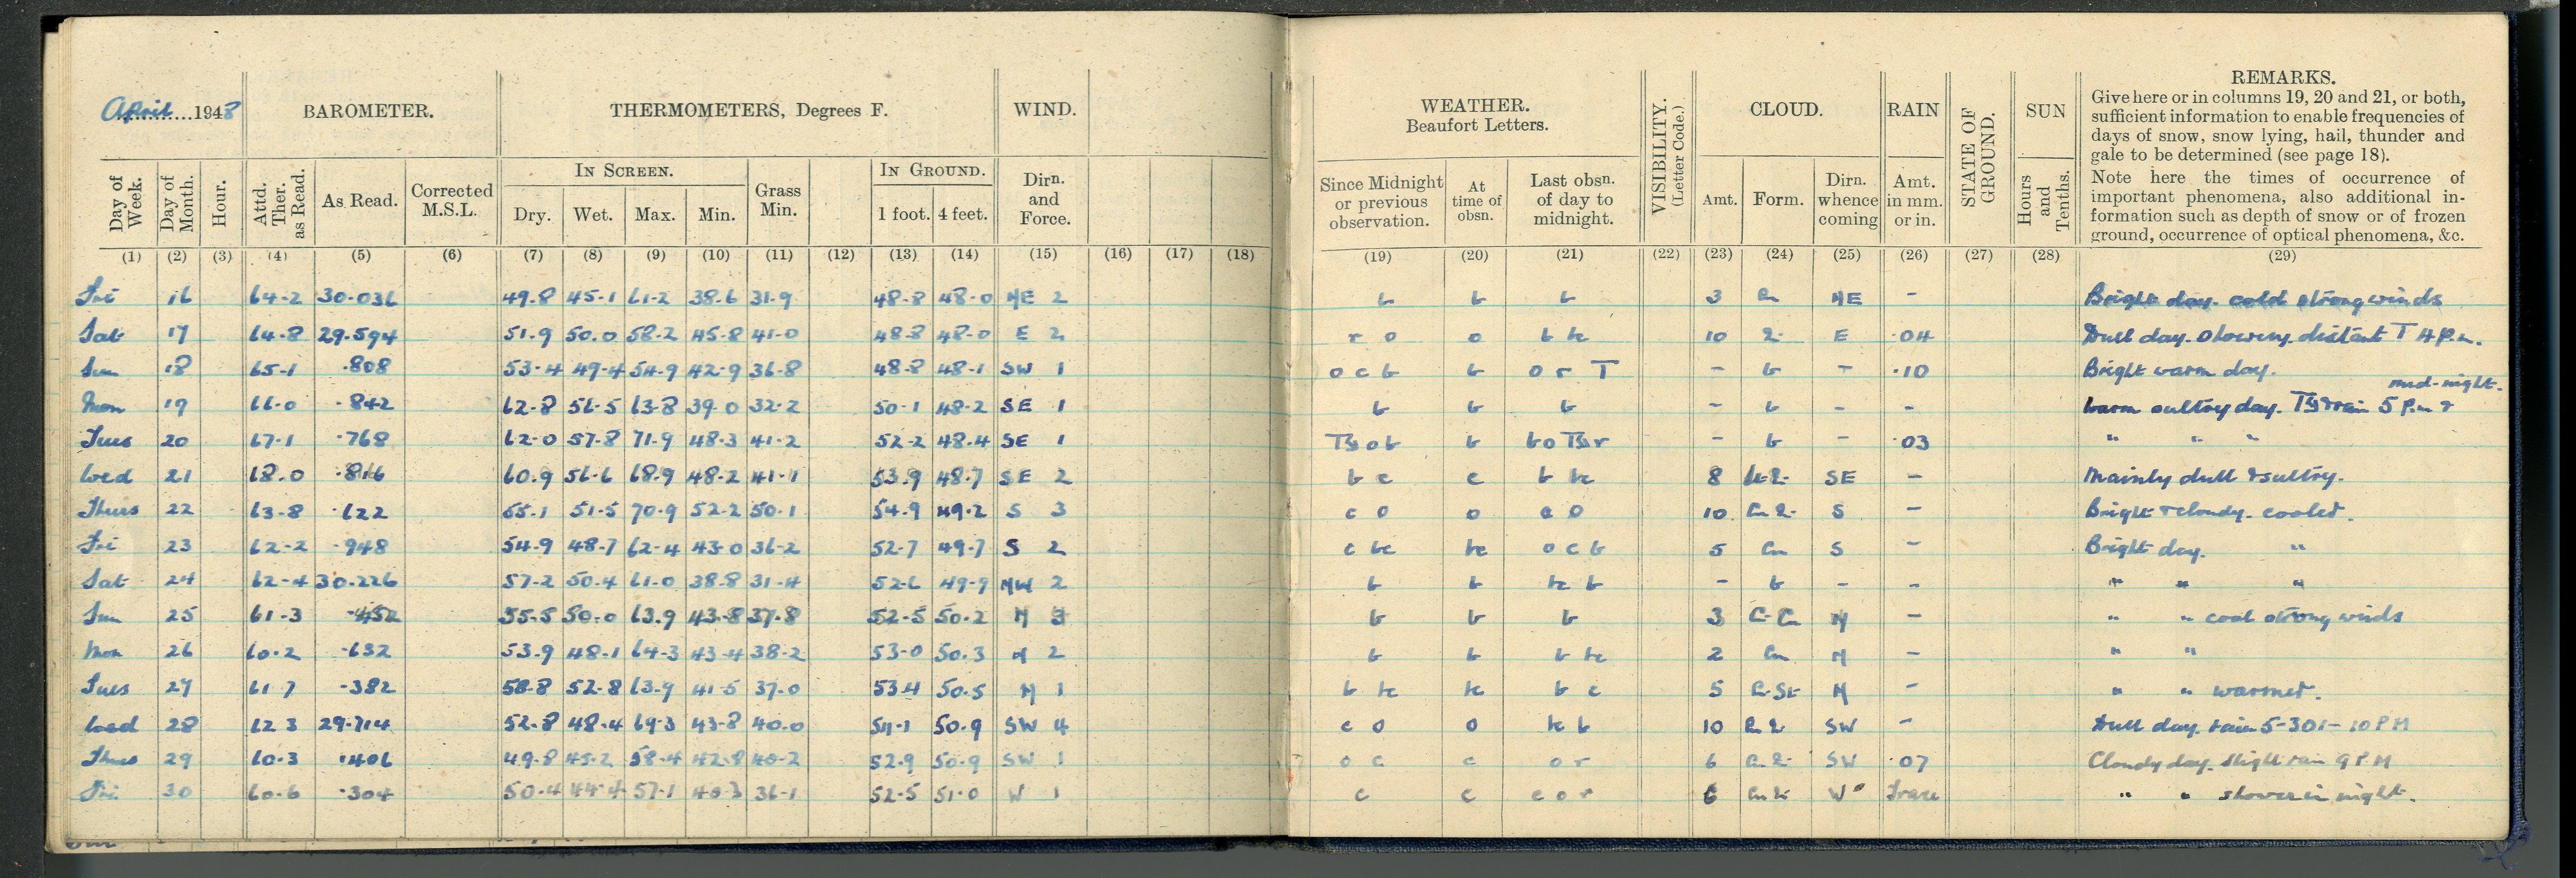 April 1948 BAROMETER. THERMOMETERS, Degrees F. WIND.
WEATHER. Beaufort Letters. VISIBILITY. (Letter Code.) CLOUD. RAIN STATE OF GROUND. SUN REMARKS.
Give here or in columns 19, 20 and 21, or both,
sufficient information to enable frequencies of
days of snow, snow lying, hail, thunder and
gale to be determined (see page 18).
Note here the times of occurrence of
important phenomena, also additional in-
formation such as depth of snow or of frozen
ground, occurrence of optical phenomena, &c.
IN SCREEN. IN GROUND.
Day of Week. Day of Month. Hour. Attd. Ther. as Read. As Read. Corrected M.S.L. Dry. Wet. Max. Min. Grass Min. 1 foot. 4 feet. Dirn. and Force.
Since Midnight or previous observation. At time of obsn. Last obsn. of day to midnight. Amt. Form. Dirn. whence coming Amt. in mm. or in. Hours and Tenths.
(1) (2) (3) (4) (5) (6) (7) (8) (9) (10) (11) (12) (13) (14) (15) (16) (17) (18) (19) (20) (21) (22) (23) (24) (25) (26) (27) (28) (29)
Fri 16 64.2 30.036 49.8 45.1 61.2 38.6 31.9 48.8 48.0 NE 2 b b b 3 NE - Bright day. cold strong winds
Sat 17 64.8 29.594 51.9 50.0 58.2 45.8 41.0 48.8 48.0 E 2 r o o b bc 10 E .04 Dull day. Showery. distant T 4 P.m.
Sun 18 65.1 .808 53.4 49.4 54.9 42.9 36.8 48.8 48.1 SW 1 o c b b o r T - b - .10 Bright warm day.
Mon 19 66.0 .842 62.8 56.5 63.8 39.0 32.2 50.1 48.2 SE 1 b b b - b - - Warm sultry day. rain 5 P.m & mid-night.
Tues 20 67.1 .768 62.0 57.8 71.9 48.3 41.2 52.2 48.4 SE 1 o b b b o r - b - .03 " " "
Wed 21 68.0 .816 60.9 56.6 68.9 48.2 41.1 53.9 48.7 SE 2 b c c b bc 8 SE - Mainly dull & sultry.
Thurs 22 63.8 .622 55.1 51.5 70.9 52.2 50.1 54.9 49.2 S 3 c o o c o 10 S - Bright & cloudy. cooler.
Fri 23 62.2 .948 54.9 48.7 62.4 43.0 36.2 52.7 49.7 S 2 c bc bc o c b 5 Cu S - Bright day. "
Sat 24 62.4 30.226 57.2 50.4 61.0 38.8 31.4 52.6 49.9 NW 2 b b bc b - b - - " " "
Sun 25 61.3 .452 55.5 50.0 63.9 43.8 37.8 52.5 50.2 N 3 b b b 3 N - " " cool strong winds
Mon 26 60.2 .632 53.9 48.1 64.3 43.4 38.2 53.0 50.3 N 2 b b b bc 2 Cu N - " "
Tues 27 61.7 .382 58.8 52.8 63.9 41.5 37.0 53.4 50.5 N 1 b bc bc b c 5 N - " " warmer.
Wed 28 62.3 29.714 52.8 48.4 69.3 43.8 40.0 54.1 50.9 SW 4 c o o bc b 10 SW - Dull day. rain 5-30 - 10 PM
Thurs 29 60.3 .406 49.8 45.2 58.4 42.8 40.2 52.9 50.9 SW 1 o c c o r 6 SW .07 Cloudy day. Slight rain 9 P.M
Fri 30 60.6 .304 50.4 44.4 57.1 40.3 36.1 52.5 51.0 W 1 c c c o r 6 W Trace " " shower in night.